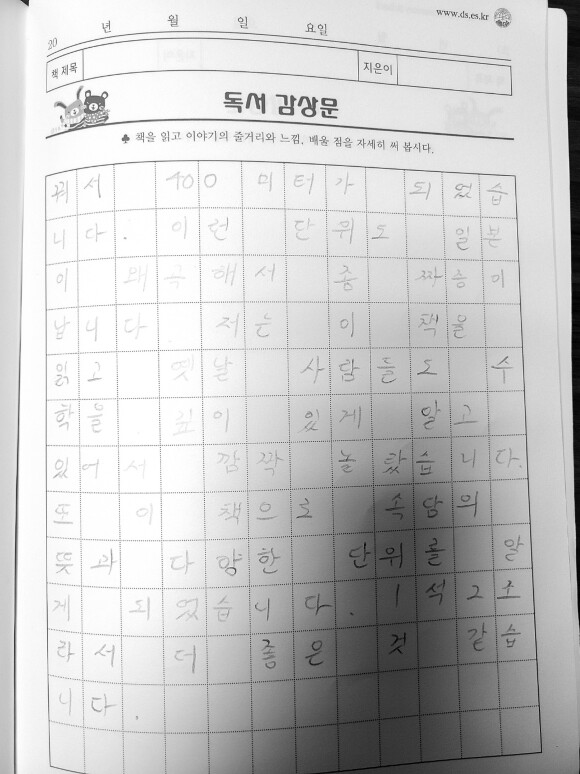 www.ds.es.kr
20 년 월 일 요일
책 제목 지은이
독서 감상문
♣ 책을 읽고 이야기의 줄거리와 느낌, 배울 점을 자세히 써 봅시다.
꿔서 400 미터가 되었습
니다. 이런 단위도 일본
이 왜곡해서 좀 짜증이
납니다 저는 이 책을
읽고 옛날 사람들도 수
학을 깊이 있게 알고
있어서 깜짝 놀랐습니다.
또 이 책으로 속담의
뜻과 다양한 단위를 알
게 되었습니다. 1석2조
라서 더 좋은 것 같습
니다.